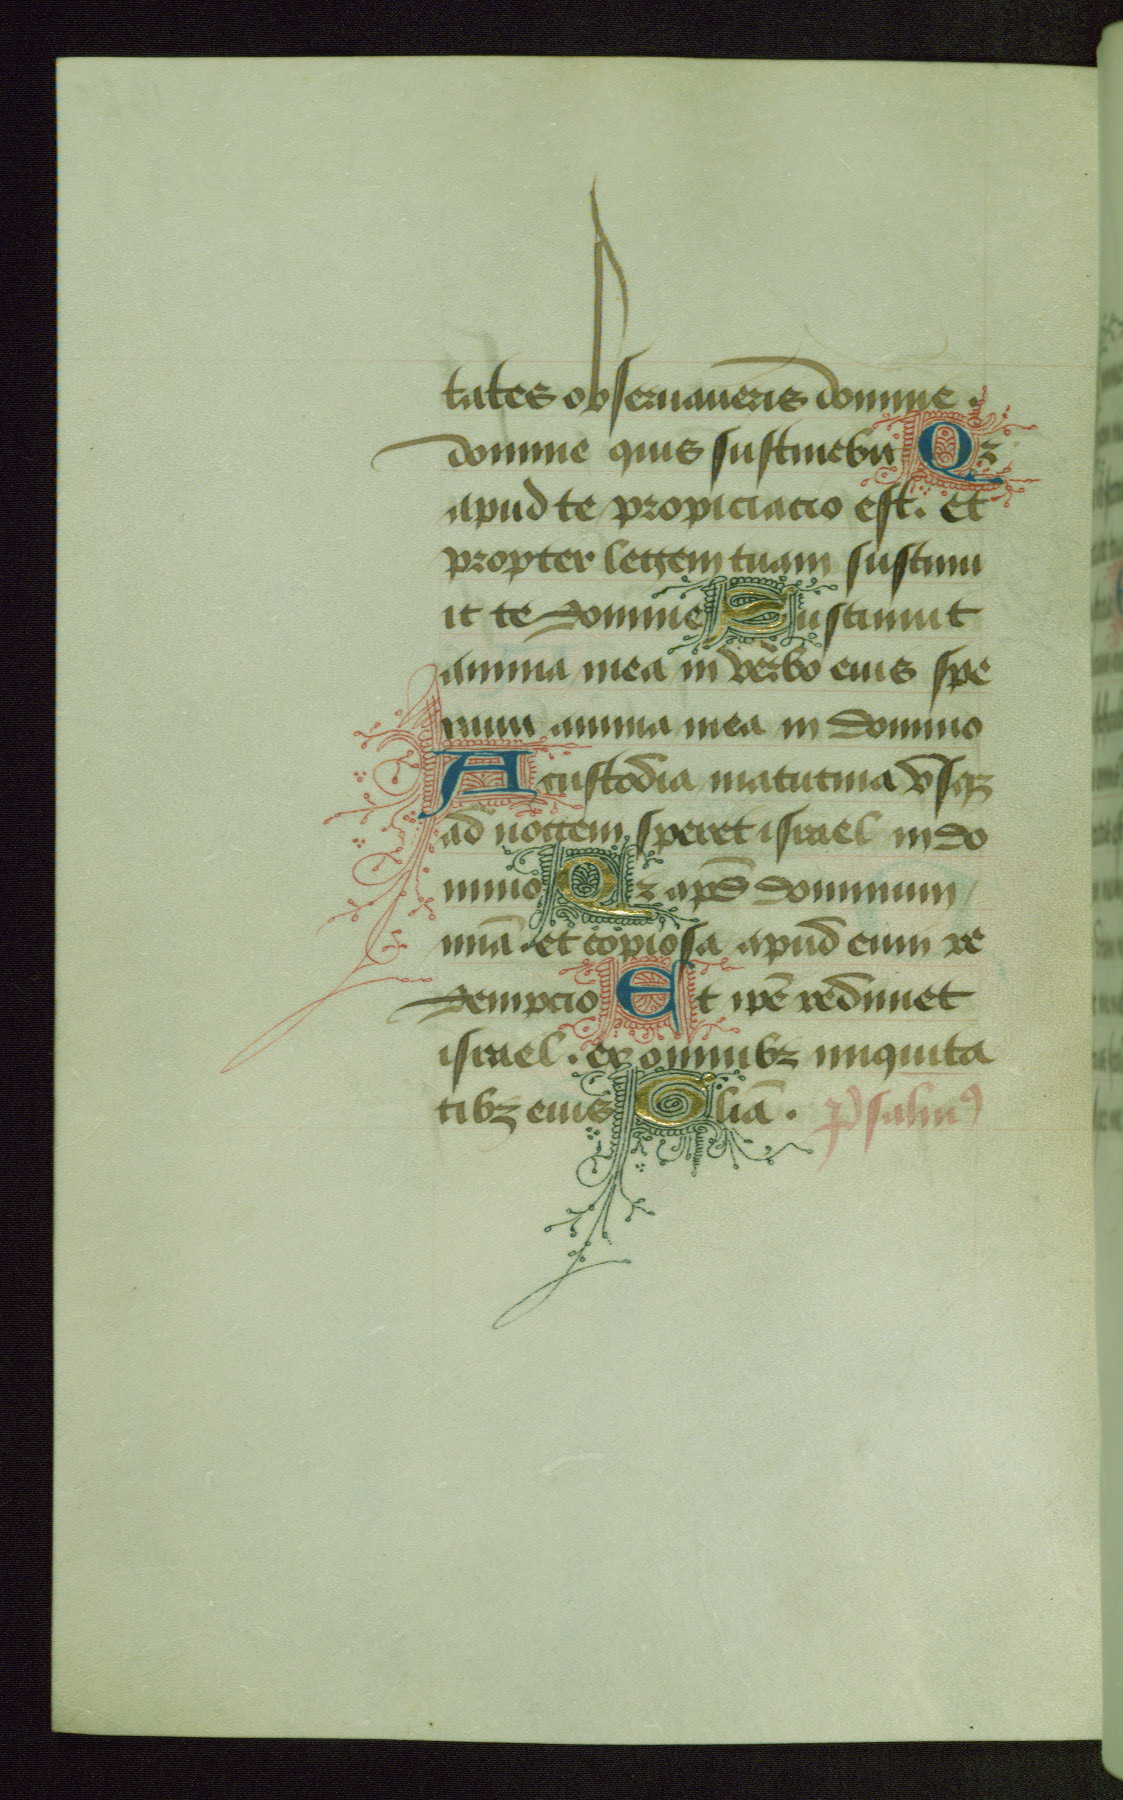 tates obseruaueris domine.
domine quis sustinebit Qz
apud te propiciacio est. et
propter legem tuam sustinu
it te domine Sustinuit
anima mea in verbo eius spe
rauit anima mea in domino
A custodia matutina vsqz
ad noctem speret israel in do
mino Qz apd̄ dominum
miā. et copiosa apud eum re
dempcio Et ip̄e redimet
israel. ex omnibz iniquita
tibz eius Gliā. Psalmꝰ